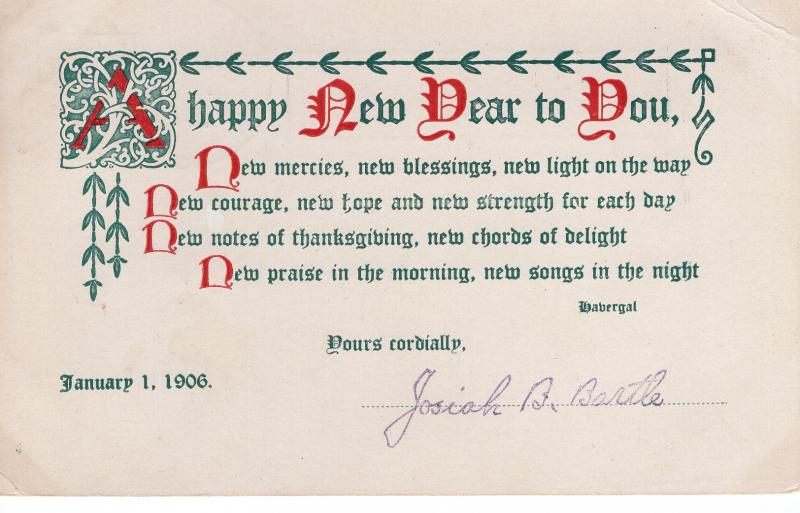 A happy New Year to You,
New mercies, new blessings, new light on the way
New courage, new hope and new strength for each day
New notes of thanksgiving, new chords of delight
New praise in the morning, new songs in the night
Havergal
Yours cordially,
January 1, 1906.
Josiah B. Bartle